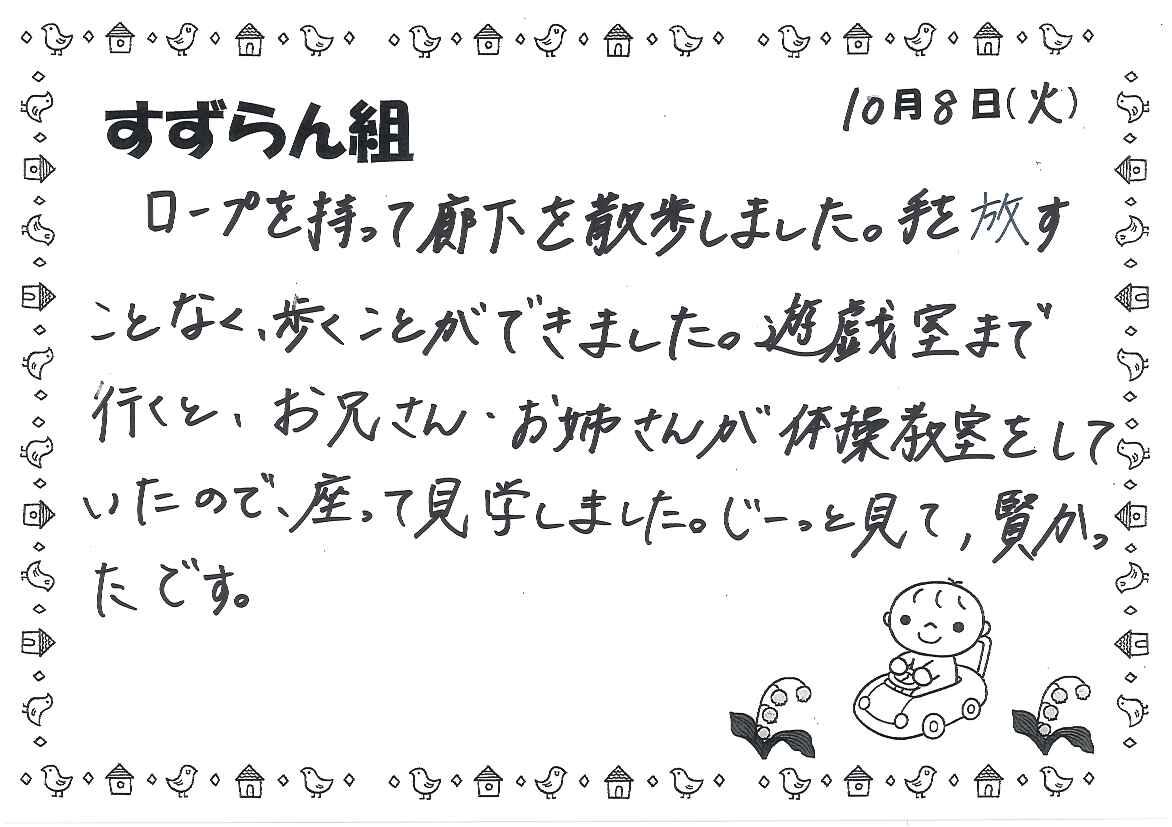 すずらん組
10月8日(火)
ロープを持って廊下を散歩しました。手を放す
ことなく、歩くことができました。遊戯室まで
行くと、お兄さん・お姉さんが体操教室をして
いたので、座って見学しました。じーっと見て、賢かっ
たです。